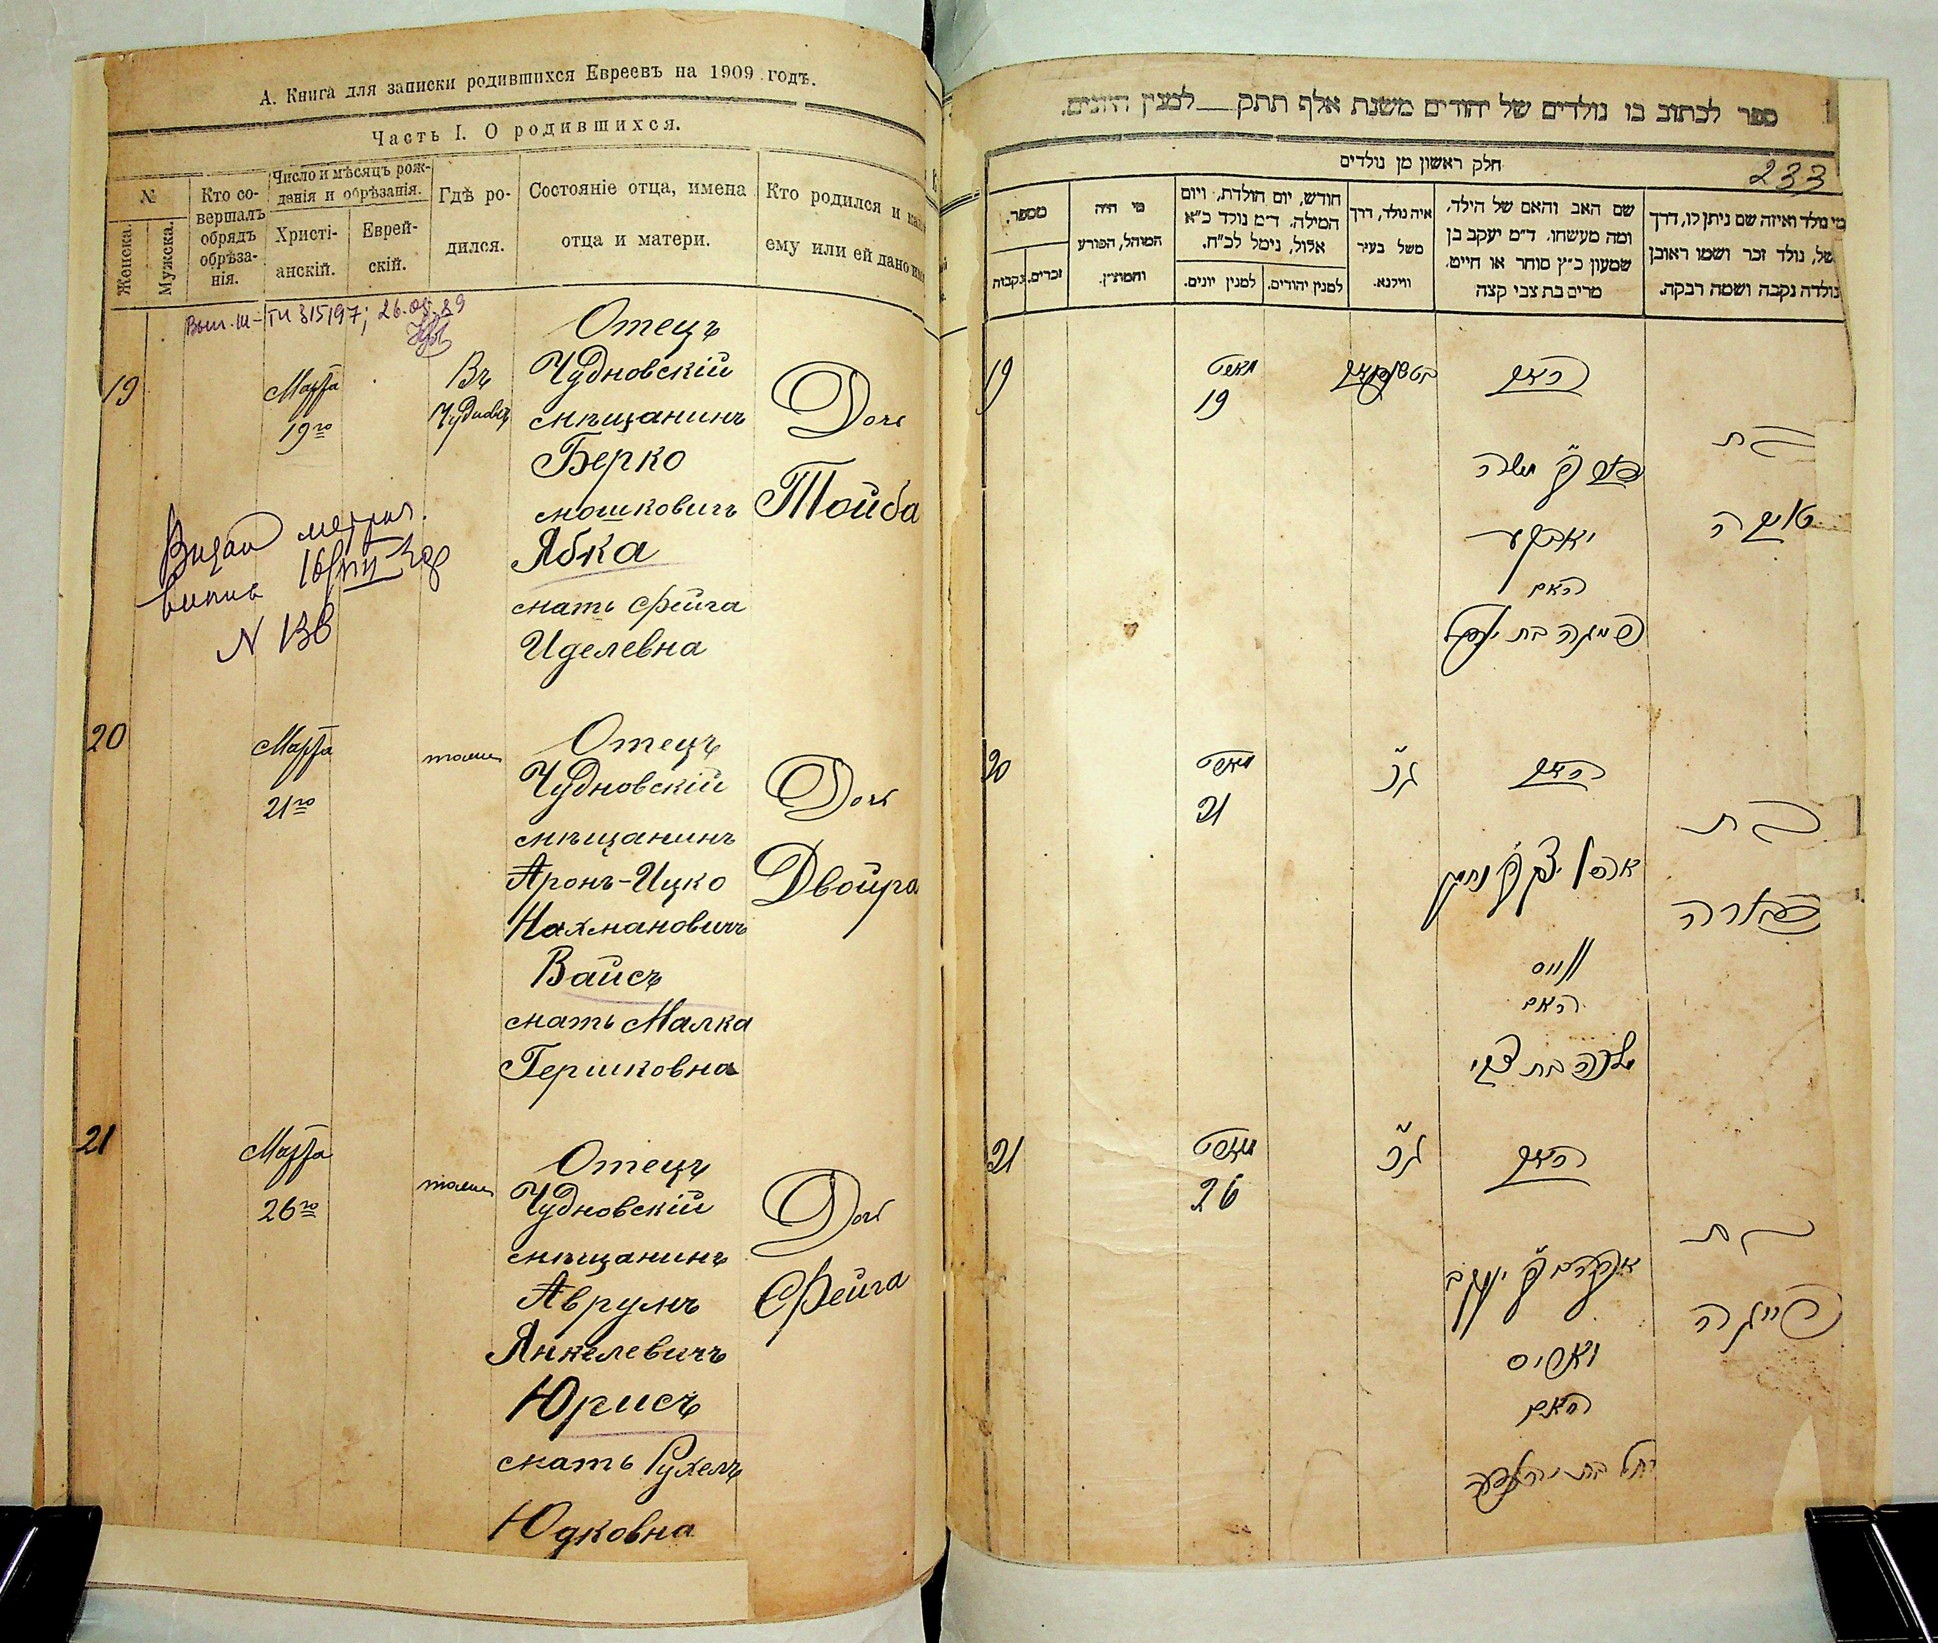 А. Книга для записки родившихся Евреевъ на 1909 годъ.
Часть I. О родившихся.
№
Женска.
Мужска.
Кто со-
вершалъ
обрядъ
обрѣза-
нія.
Число и мѣсяцъ рож-
денія и обрѣзанія.
Христі-
анскій.
Еврей-
скій.
Гдѣ ро-
дился.
Состояніе отца, имена
отца и матери.
Кто родился и
ему или ей дано
315197; 26.05.89
19
Марта
19го
Въ
Чудновѣ
Отецъ
Чудновскій
мѣщанинъ
Берко
Мошковичъ
Ябка
мать Фейга
Иделевна
Дочь
Тойба
N 138
20
Марта
21го
тоже
Отецъ
Чудновскій
мѣщанинъ
Аронъ-Ицко
Нахмановичъ
Вайсъ
мать Малка
Гершковна
Дочь
Двойра
21
Марта
26го
тоже
Отецъ
Чудновскій
мѣщанинъ
Аврумъ
Янкелевичъ
Юрисъ
мать Рухель
Юдковна
Дочь
Фейга
ספר לכתוב בו נולדים של יהודים משנת אלף תתק למנין היונים.
233
חלק ראשון מן נולדים
מי נולד ואיזה שם ניתן לו, דרך
משל, נולד זכר ושמו ראובן
נולדה נקבה ושמה רבקה.
שם האב והאם של הילד,
ומה מעשהו. ד״מ יעקב בן
שמעון כ״ץ סוחר או חייט.
מרים בת צבי קצה
איה נולד, דרך
משל בעיר
ווילנא.
חודש, יום הולדת, ויום
המילה. ד״מ נולד כ״א
אלול, נימל לכ״ח.
למנין יהודים.
למנין יונים.
מי היה
המוהל, הפורע
והמוצץ.
מספר.
זכרים.
נקבות
19
מארט
19
האב
בת
טויבה
האם
20
מארט
21
האב
אהרן יצחק בן נחמן
ווייס
האם
מלכה בת צבי
בת
דבורה
21
מארט
26
האב
אברהם בן יעקב
האם
בת
פייגה